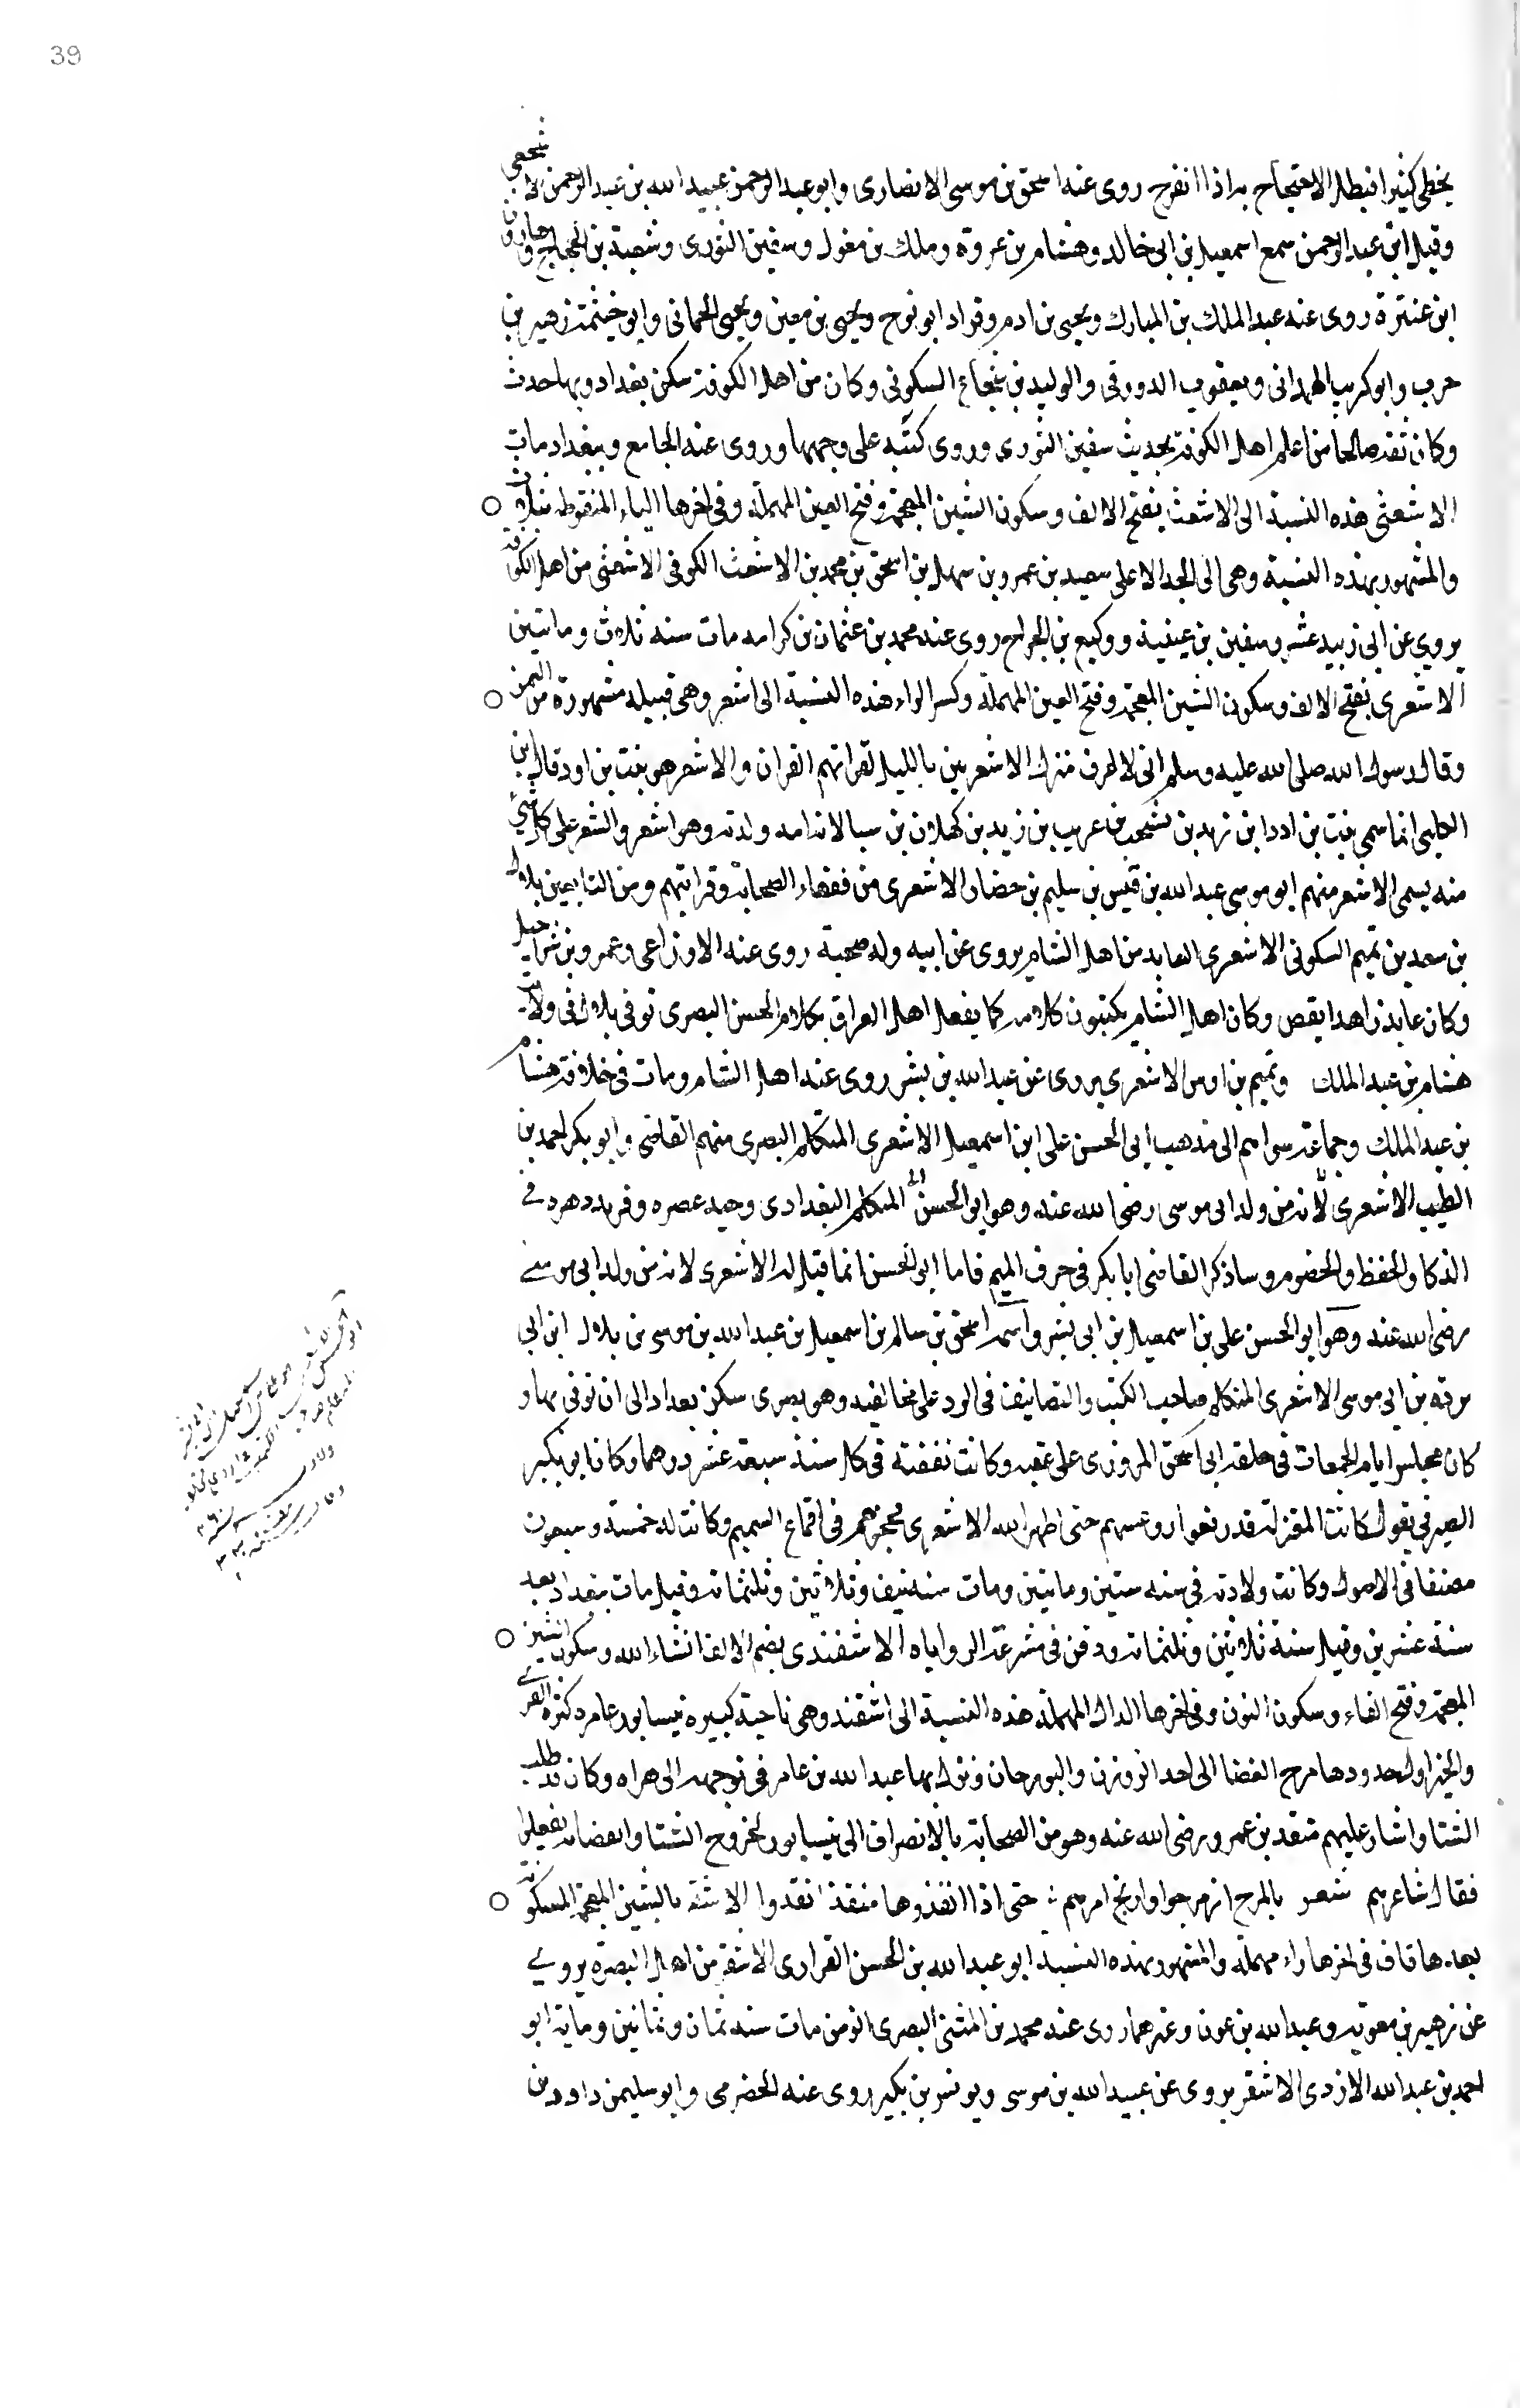 39
يخطئ كثيرا فبطل الاحتجاج به اذا انفرد روى عنه اسحق بن موسى الانصارى وابو عبد الرحمن عبيد الله بن عبد الرحمن الاشجعى
وقيل ابن عبد الرحمن سمع اسمعيل بن ابى خالد وهشام بن عروة وملك بن مغول وسفين الثورى وشعبة بن الحجاج وهارون
ابن عنترة روى عنه عبد الملك بن المبارك ويحيى بن ادم وقراد ابو نوح ويحيى بن معين ويحيى الحمانى وابو خيثمة زهير بن
حرب وابو كريب الهمدانى ويعقوب الدورقى والوليد بن شجاع السكونى وكان من اهل الكوفة سكن بغداد وبها حدث
وكان ثقة صالحا من اعلم اهل الكوفة بحديث سفين الثورى وروى كتبه على وجهها وروى عنه الجامع وببغداد مات
الاشعثى هذه النسبة الى الاشعث بفتح الالف وسكون الشين المعجمة وفتح العين المهملة وفى اخرها الثاء المنقوطه بثلاث
والمشهور بهذه النسبة وهى الى الجد الاعلى سعيد بن عمرو بن سهل بن اسحق بن محمد بن الاشعث الكوفى الاشعثى من اهل الكوفة
يروي عن ابى زبيد عبثر وسفين بن عيينة ووكيع بن الجراح روى عنه محمد بن عثمان بن كرامه مات سنه ثلاث وماتين
الاشعرى بفتح الالف وسكون الشين المعجمة وفتح العين المهملة وكسر الراء هذه النسبة الى اشعر وهى قبيله مشهورة من اليمن
وقال رسول الله صلى الله عليه وسلم انى لاعرف منزل الاشعريين بالليل لقراتهم القران والاشعر هو نبت بن اود قال ابن
الكلبى انما سمى نبت بن ادد ابن زيد بن يشجب بن عريب بن زيد بن كهلان بن سبا لان امه ولدته وهو اشعر والشعر على كل شئ
منه يسمى الاشعر منهم ابو موسى عبد الله بن قيس بن سليم بن حضار الاشعرى من فقهاء الصحابة وقرائهم ومن التابعين بلال
بن سعد بن تميم السكونى الاشعرى العابد من اهل الشام يروى عن ابيه وله صحبة روى عنه الاوزاعى وعمرو بن شراحيل
وكان عابد زاهدا يقص وكان اهل الشام يكتبون كلامه كما يفعل اهل العراق بكلام الحسن البصرى توفى بلال فى ولاية
هشام بن عبد الملك وتميم بن اوس الاشعرى يروى عن عبد الله بن بشر روى عنه اهل الشام ومات فى خلافة هشام
بن عبد الملك وجماعة سواهم الى مذهب ابى الحسن على ابن اسمعيل الاشعرى المتكلم البصرى منهم القاضى وابو بكر احمد بن
الطيب الاشعرى لا لانه من ولد ابى موسى رضى الله عنه وهو ابو الحسن المتكلم البغدادى وحيد عصره وفريد دهره فى
الذكا والحفظ والخصوم وساذكر القاضى ابا بكر فى حرف الميم فاما ابو الحسن انما قيل له الاشعرى لانه من ولد ابى موسى
رضى الله عنه وهو ابو الحسن على بن اسمعيل بن ابى بشر واسمه اسحق بن سالم بن اسمعيل بن عبد الله بن موسى بن بلال ابن ابى
برده بن ابى موسى الاشعرى المتكلم صاحب الكتب والتصانيف فى الرد على مخالفيه وهو بصرى سكن بغداد الى ان توفى بها و
كان يجلس ايام الجمعات فى حلقه ابى اسحق المروزى على عقبه وكانت نفقته فى كل سنة سبعة عشر درهما وكان ابو بكر
الصيرفى يقول كانت المعتزلة قد رفعوا روءسهم حتى اظهر الله الاشعرى فحجزهم فى اقماع السمسم وكانت له خمسة وسبعون
مصنفا فى الاصول وكانت ولادته فى سنه ستين وماتين ومات سنه نيف وثلاثين وثلثمائة وقيل مات ببغداد بعد
سنة عشرين وقيل سنة ثلاثين وثلثمائة ودفن فى مشرعة الروايا الاشفندى بضم الالف انشاء الله وسكون الشين
المعجمة وفتح الفاء وسكون النون وفى اخرها الدال المهملة هذه النسبة الى اشفند وهى ناحية كبيره نيسابور عامره كثيرة القرى
والخير اول حدودها مرج الفضا الى احد الزوزن والبوزجان ونزل بها عبد الله بن عامر فى توجهه الى هراه وكان قد طلب
الشتا واشار عليهم منقذ بن عمرو رضى الله عنه وهو من الصحابة بالانصراف الى نيسابور لخروج الشتا وانقضائه ففعلوا
فقال شاعرهم شعر بالمرج اذ مرجوا وارتج امرهم : حتى اذا انفذوها منقذ انفذوا الاشقر بالشين المعجمة المسكونة
بعدها قاف فى اخرها راء مهملة والمشهور بهذه النسبة ابو عبد الله بن الحسن الفزارى الاشقر من اهل البصرة يروى
عن زهير بن معوية وعبد الله بن عون وغيرهما روى عنه محمد بن المثنى البصرى الزمن مات سنه ثمان وثمانين ومائة ابو
احمد بن عبد الله الازدى الاشقر يروى عن عبيد الله بن موسى ويونس بن بكير روى عنه الحضرمى وابو سليمن داود بن